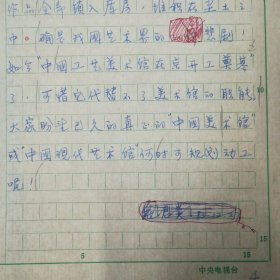 作品全等锁入库房,谁都在尘土之
中。确是我国艺术界的悲剧!
如今"中国工艺美术馆在京开工奠基"
了,可惜它代替不了美术馆的职能,
大家盼望已久的真正的"中国美术馆"
或"中国现代艺术馆"何时可规划动工
呢!
5
15
15
中央电视台